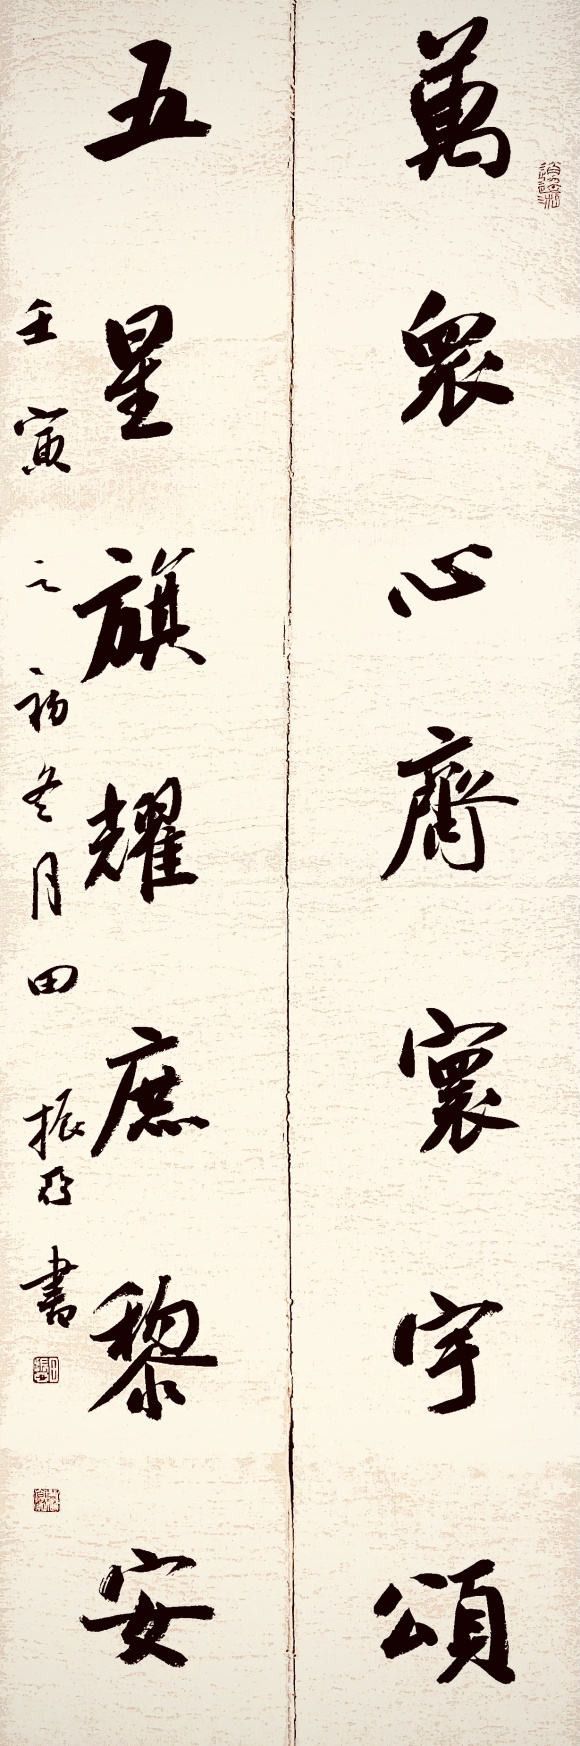 萬眾心齊寰宇頌
五星旗耀庶黎安
壬寅之初冬月田振亞書